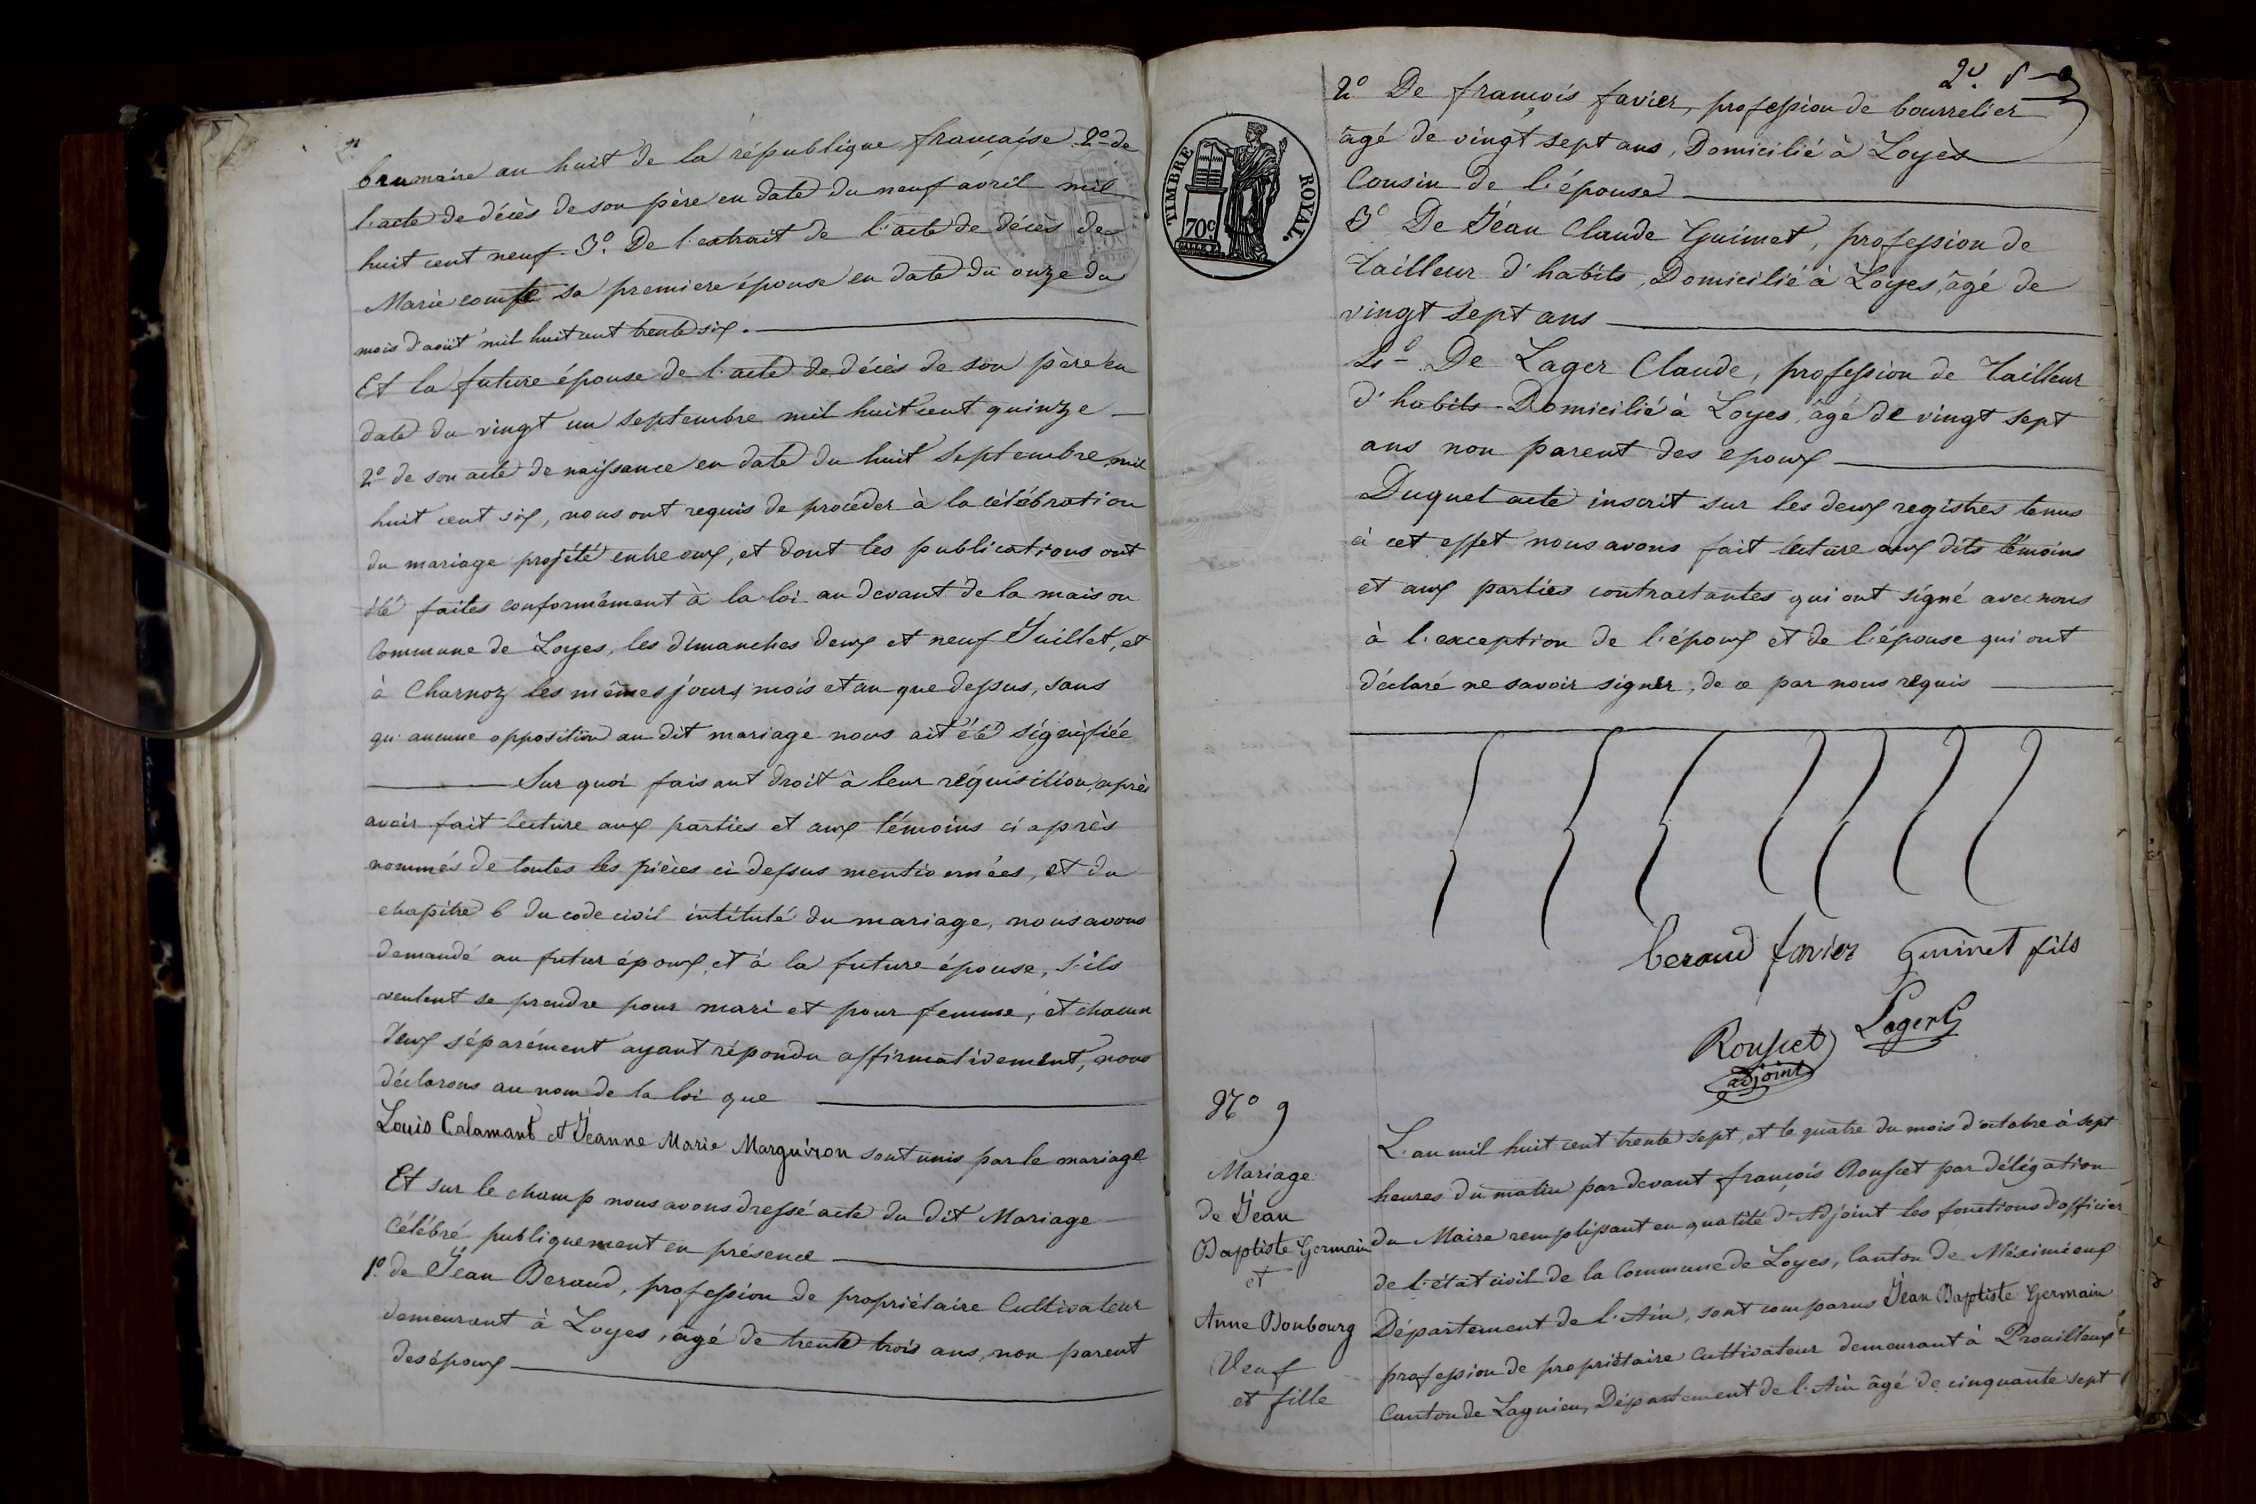 brumaire an huit de la république française 2º de
l'acte de décès de son père en date du neuf avril mil
huit cent neuf. 3º. De l'extrait de l'acte de décès de
Marie comte sa premiere épouse en date du onze du
mois d'août mil huit cent trente six.
Et la future épouse de l'acte de décès de son père en
date du vingt un septembre mil huit cent quinze
2º de son acte de naissance en date du huit septembre mil
huit cent six, nous ont requis de procéder à la célébration
du mariage projété entre eux, et dont les publications ont
été faites conformément à la loi au devant de la maison
Commune de Loyes, les dimanches deux et neuf Juillet, et
à Charnoz les mêmes jours, mois et an que dessus, sans
qu'aucune opposition au dit mariage nous ait été signifiée
Sur quoi faisant droit à leur réquisition, après
avoir fait lecture aux parties et aux témoins ci après
nommés de toutes les pièces ci dessus mentionnées, et du
chapitre 6 du code civil intitulé du mariage, nous avons
demandé au futur époux, et à la future épouse, s'ils
veulent se prendre pour mari et pour femme, et chacun
deux séparément ayant répondu affirmativement, nous
déclarons au nom de la loi que
Louis Calamant et Jeanne Marie Marguiron sont unis par le mariage
Et sur le champ nous avons dressé acte du dit Mariage
Célébré publiquement en présence
1º. de Jean Beraud, profession de propriétaire Cultivateur
demeurant à Loyes, âgé de trente trois ans, non parent
des époux
2º. De françois favier, profession de bourrelier
âgé de vingt sept ans, Domicilié à Loyes
Cousin de l'épouse
3º De Jean Claude Guimet, profession de
tailleur d'habits, Domicilié à Loyes, âgé de
vingt sept ans
4º. De Lager Claude, profession de tailleur
d'habits. Domicilié à Loyes, âgé de vingt sept
ans non parent des epoux
Duquel acte inscrit sur les deux registres tenus
à cet effet nous avons fait lecture aux dits témoins
et aux parties contractantes qui ont signé avec nous
à l'exception de l'époux et de l'épouse qui ont
déclaré ne savoir signer, de ce par nous requis
TIMBRE ROYAL.
70c
beraud favier Guimet fils
Lager C
Rousset
adjoint
Nº 9
Mariage
de Jean
Baptiste Germain
et
Anne Bonbourg
Veuf
et fille
L'an mil huit cent trente sept, et le quatre du mois d'octobre à sept
heures du matin par devant françois Rousset par délégation
du Maire remplissant en qualité d'Adjoint les fonctions d'officier
de l'état civil de la Commune de Loyes, Canton de Méximieux
Département de l'Ain, sont comparus Jean Baptiste Germain
profession de propriétaire Cultivateur demeurant à Prouilleux
Canton de Lagnieu, Département de l'Ain âgé de cinquante sept